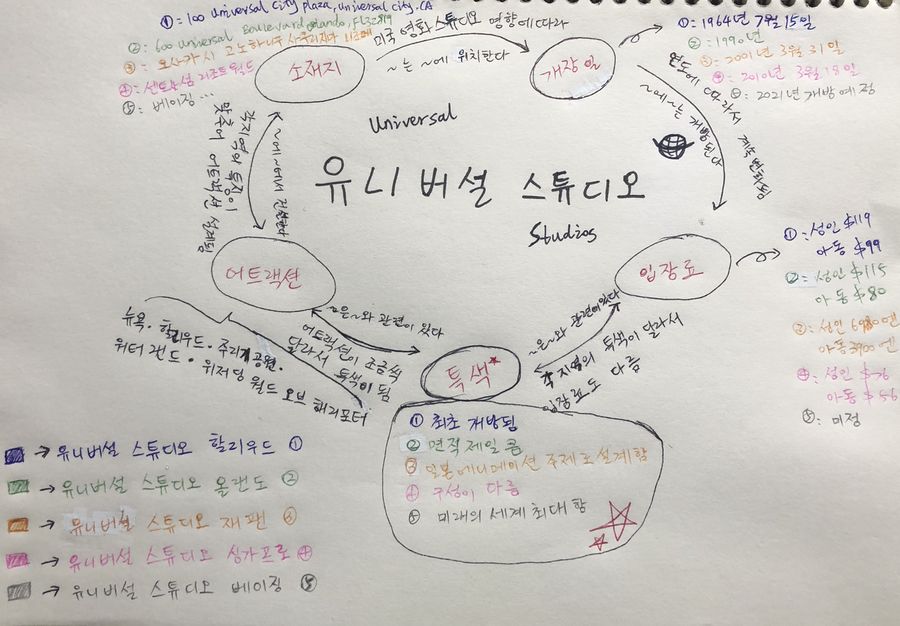 ①: 100 Universal City Plaza, Universal City. CA
②: 600 Universal Boulevard Orlando, FL 32819
③: 오사카시 고노하나구
④: 센토사섬 리조트 월드
⑤: 베이징 …
소재지
미국 영화 스튜디오 영향에 따라
~는 ~에 위치한다
개장일
①: 1964년 7월 15일
②: 1990년
③: 2001년 3월 31일
④: 2010년 3월 18일
⑤: 2021년 개방 예정
연도에 따라서 계속 변화됨
~에 ~는 개방된다
Universal
유니버설 스튜디오
Studios
각 지역의 특징이
맞추어 어트랙션 설계됨
~에 ~에서 건설한다
어트랙션
입장료
①: 성인 $119
아동 $99
②: 성인 $115
아동 $80
③: 성인 6980엔
아동 3900엔
④: 성인 $76
아동 $56
⑤: 미정
~은 ~와 관련이 있다
어트랙션이 조금씩
달라서 특색이 됨
뉴욕 · 할리우드 · 주라기 공원 ·
워터 랜드 · 위저딩 월드 오브 해리포터
~은 ~와 관련이 있다
각 지역의 특색이 달라서
입장료도 다름
특색*
① 최초 개방됨
② 면적 제일 큼
③ 일본 에니메이션 주제로 설계함
④ 구성이 다름
⑤ 미래의 세계 최대 향
→ 유니버설 스튜디오 할리우드 ①
→ 유니버설 스튜디오 올랜도 ②
→ 유니버설 스튜디오 재팬 ③
→ 유니버설 스튜디오 싱가프로 ④
→ 유니버설 스튜디오 베이징 ⑤